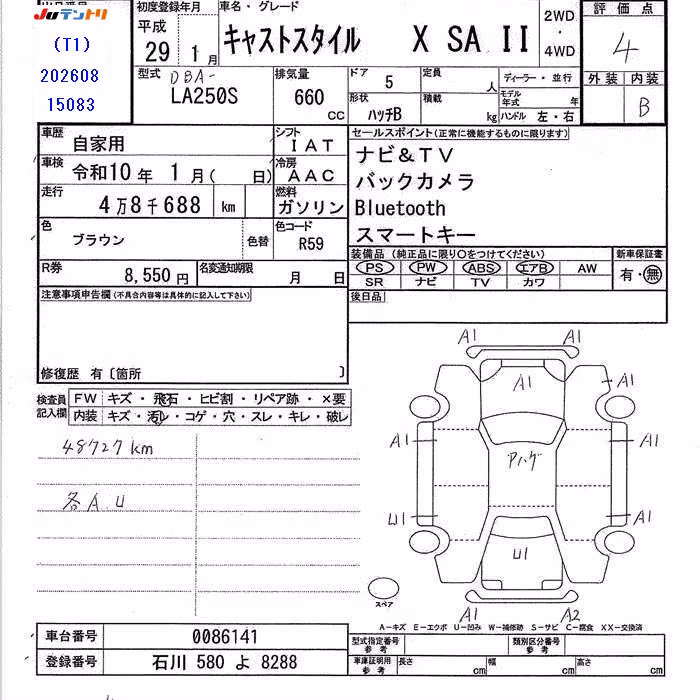 出品番号
Juテントリ
(T1)
202608
15083
初度登録年月
平成
29 年 1 月
車名・グレード
キャストスタイル X SA II
2WD
・
4WD
評価点
4
外装 内装
B
型式 DBA-
LA250S
排気量
660
cc
ドア 5
定員 人
ディーラー・並行
モデル年式 年
形状 ハッチB
積載 kg
ハンドル 左・右
車歴 自家用
シフト IAT
車検 令和10年 1月( 日)
冷房 AAC
走行 4万8千688 km
燃料 ガソリン
色 ブラウン 色替
色コード R59
R券 8,550円
名変通知期限 月 日
セールスポイント(正常に機能するものに限ります)
ナビ&TV
バックカメラ
Bluetooth
スマートキー
装備品(純正品に限り○をつけてください)
PS PW ABS エアB AW
SR ナビ TV カワ
新車保証書
有・無
後日品
注意事項申告欄(不具合内容等は具体的に記入して下さい)
修復歴 有〔箇所 〕
検査員記入欄
FW キズ・飛石・ヒビ割・リペア跡・×要
内装 キズ・汚れ・コゲ・穴・スレ・キレ・破レ
48727km
各A.U
A1
A1
A1
A1
A1
アハゲ
U1
A1
U1
A1
A2
スペア
A-キズ E-エクボ U-凹み W-補修跡 S-サビ C-腐食 XX-交換済
車台番号 0086141
登録番号 石川 580 よ 8288
型式指定番号 参考
類別区分番号 参考
車庫証明用 参考
長さ cm 幅 cm 高さ cm